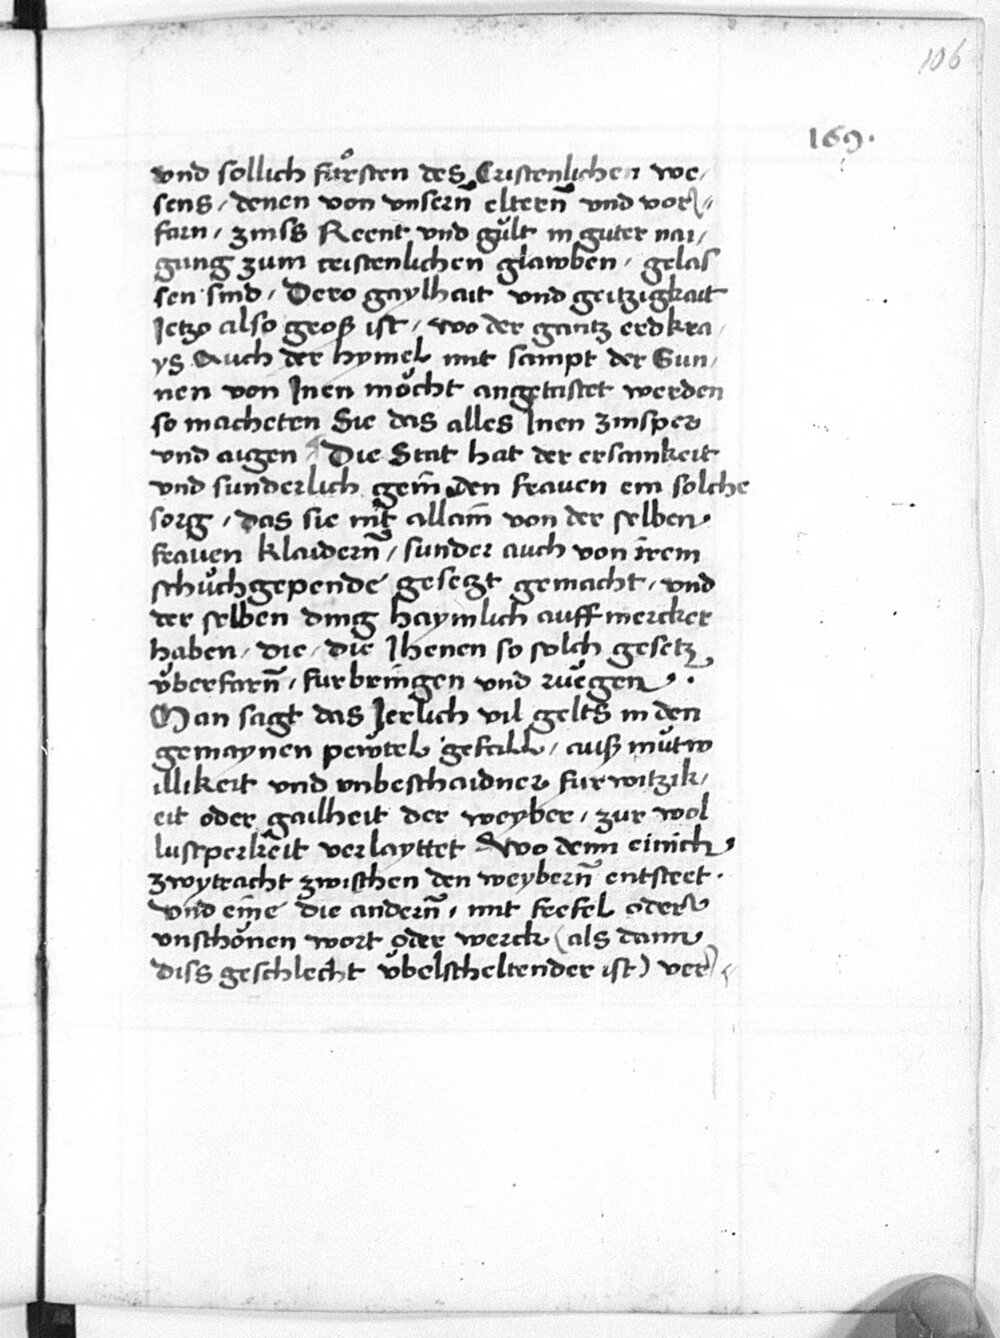 106
169.
vnd sollich fůrsten des Cristenlichen we/
sens / denen von vnsern̄ eltern̄ vnd vor//
farn / zinss Reent vnd gůlt in guter nai/
gung zum cristenlichen glawben / gelas
sen sind / Dero gaylhait vnd geitzigkait
Jetzo also groß ist / wo der gantz erdkra/
ys Auch der hymel mit sampt der Sun/
nen von Jnen mőcht angetastet werden
so macheten Sie das alles Jnen zinsper
vnd aigen / Die Stat hat der ersamkeit
vnd sunderlich gein den frauen ein solche
sorg / das sie nit allain von der selben
frauen klaidern̄ / sunder auch von irem
schůchgepende gesetzt gemacht / vnd
der selben ding haymlich auffmercker
haben / die / die Jhenen so solch gesetz
ůberfarn̄ / furbringen vnd rüegen / .
Man sagt das Jerlich vil gelts in den
gemaynen pewtel gefall / auß můtw
illikeit vnd vnbeschaidner furwitzik/
eit oder gailheit der weyber / zur wol
lustperkeit verlayttet Wo denn einich
zwytracht zwischen den weybern̄ entsteet .
vnd eine die andern̄ / mit frefel oder
vnschőnen wort oder werck (als dann
diss geschlecht ůbelscheltender ist) ver//